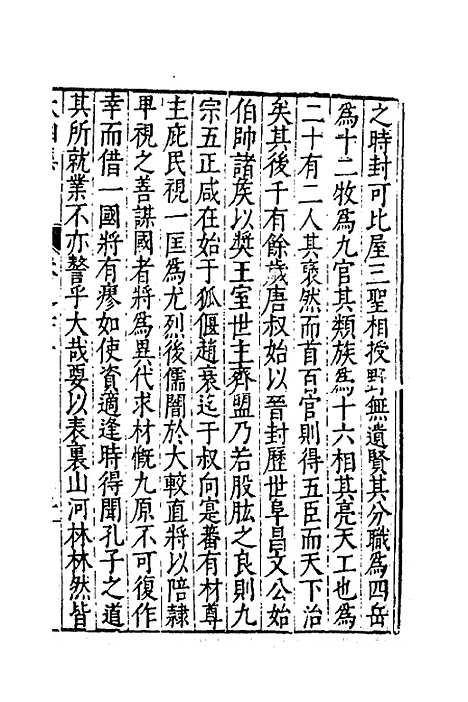 之時封可比屋三聖相授野無遺賢其分職爲四岳
爲十二牧爲九官其類族爲十六相其亮天工也爲
二十有二人其裒然而首百官則得五臣而天下治
矣其後千有餘歲唐叔始以晉封歷世阜昌文公始
伯帥諸矦以奬王室世主齊盟乃若股肱之良則九
宗五正咸在始于狐偃趙衰迄于叔向寔蕃有材尊
主庇民視一匡爲尤烈後儒闇於大較直將以陪隸
卑視之善謀國者將爲異代求材慨九原不可復作
幸而借一國將有瘳如使資適逢時得聞孔子之道
其所就業不亦謷乎大哉要以表裏山河林林然皆